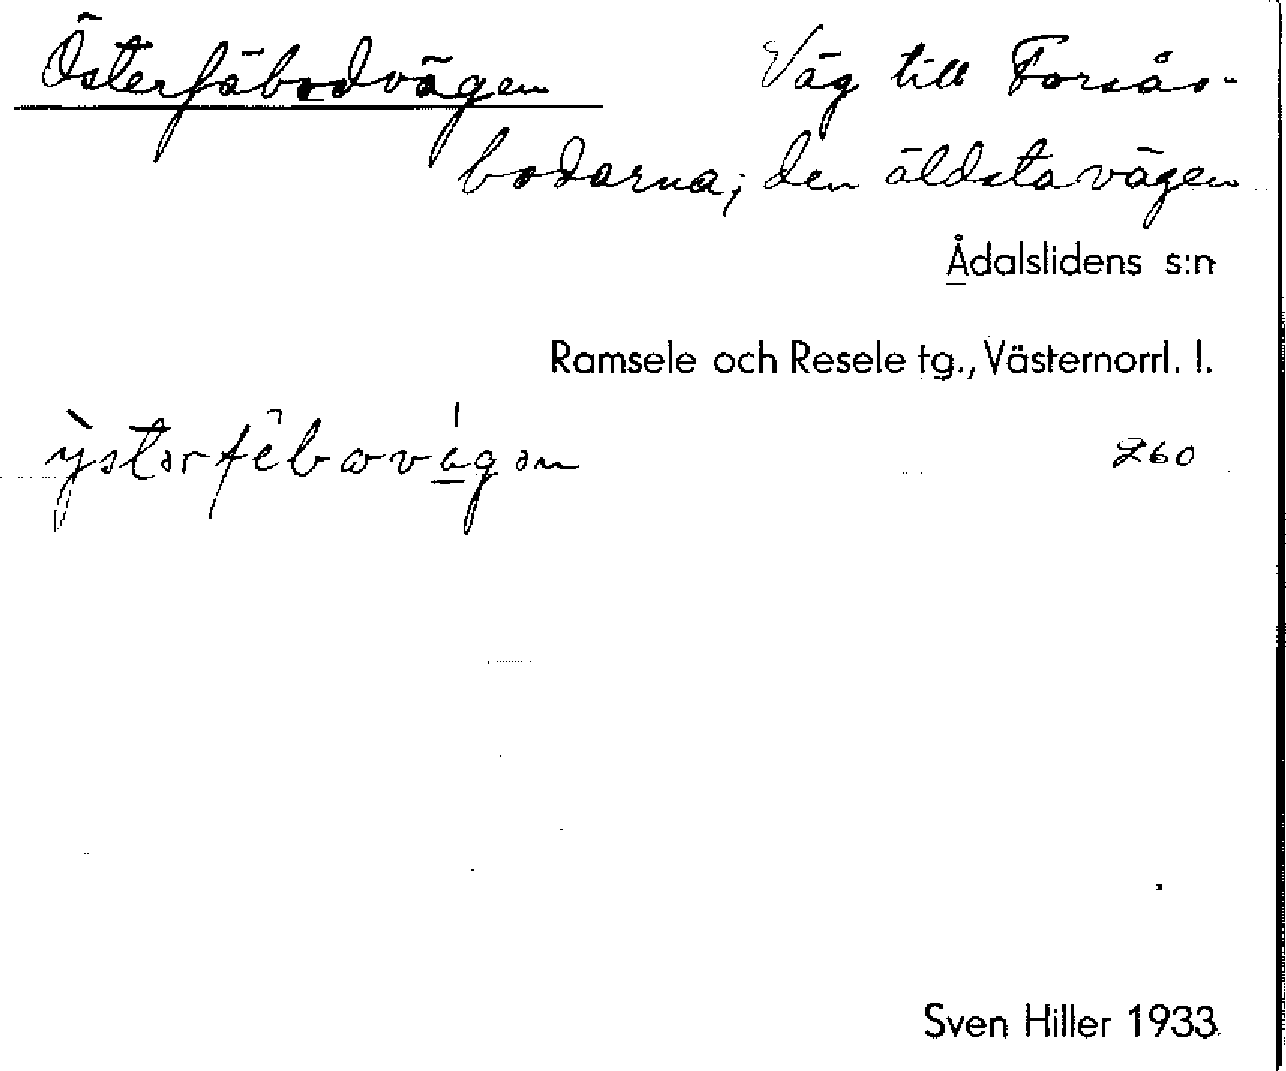 Österfäbodvägen Väg till Forsås-
bodarna; den äldsta vägen
Ådalslidens s:n
Ramsele och Resele tg., Västernorrl. l.
260
Sven Hiller 1933